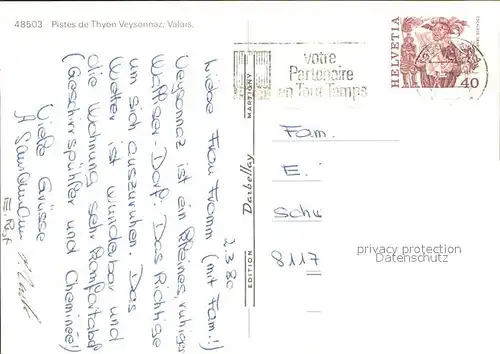 48503 Pistes de Thyon Veysonnaz, Valais.
2.3.80
Liebe Frau Fromm (mit Fam.!)
Veysonnaz ist ein kleines, ruhiges
Walliser-Dorf. Das Richtige
um sich auszuruhen. Das
Wetter ist wunderbar und
die Wohnung sehr komfortabel
(Geschirrspühler und Cheminée!)
Viele Grüsse
EDITION Darbellay MARTIGNY
votre
Partenaire
en Tout Temps
HELVETIA
40
Fam.
E.
Schu
8117
privacy protection
Datenschutz